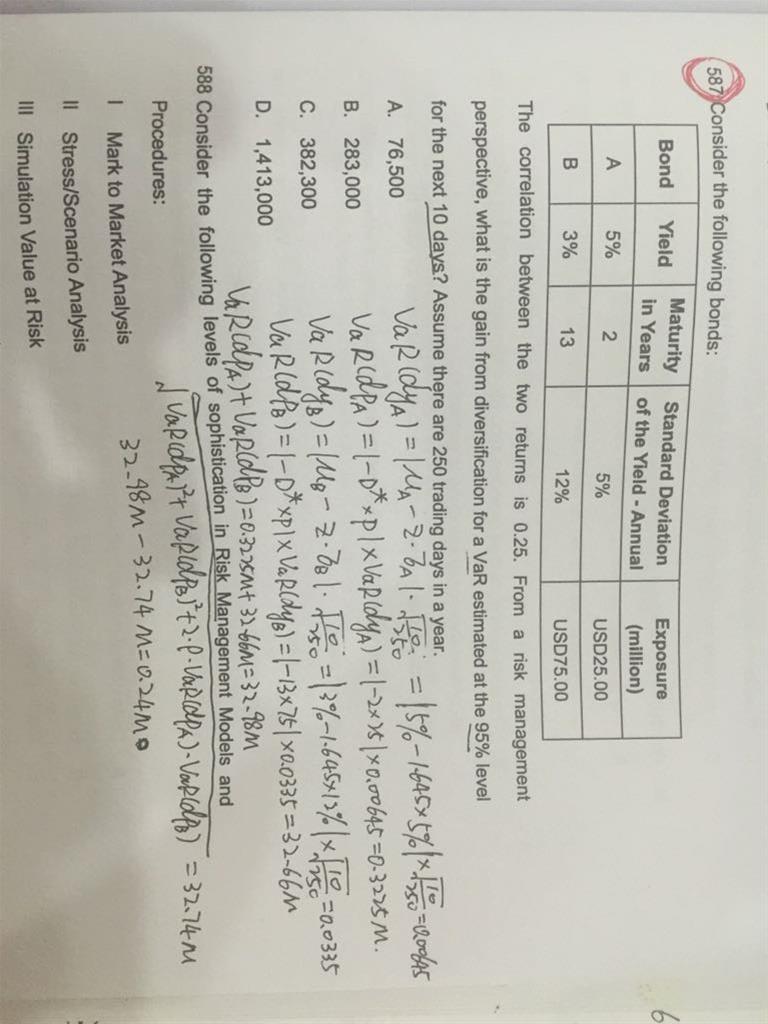 6
587 Consider the following bonds:
Bond Yield Maturity in Years Standard Deviation of the Yield - Annual Exposure (million)
A 5% 2 5% USD25.00
B 3% 13 12% USD75.00
The correlation between the two returns is 0.25. From a risk management
perspective, what is the gain from diversification for a VaR estimated at the 95% level
for the next 10 days? Assume there are 250 trading days in a year.
A. 76,500
B. 283,000
C. 382,300
D. 1,413,000
VaR(dyA) = |μA - z·σA|·√10/√250 = |5%-1.645×5%|×√10/√250=0.00645
VaR(dPA)=|-D*×P|×VaR(dyA)=|-2×25|×0.00645=0.3225M.
VaR(dyB)=|μB-z·σB|·√10/√250=|3%-1.645×12%|×√10/√250=0.0335
VaR(dPB)=|-D*×P|×VaR(dyB)=|-13×75|×0.0335=32.66M
VaR(dPA)+VaR(dPB)=0.3225M+32.66M=32.98M
√VaR(dPA)²+VaR(dPB)²+2·ρ·VaR(dPA)·VaR(dPB) =32.74M
32.98M-32.74M=0.24M
588 Consider the following levels of sophistication in Risk Management Models and
Procedures:
I Mark to Market Analysis
II Stress/Scenario Analysis
III Simulation Value at Risk